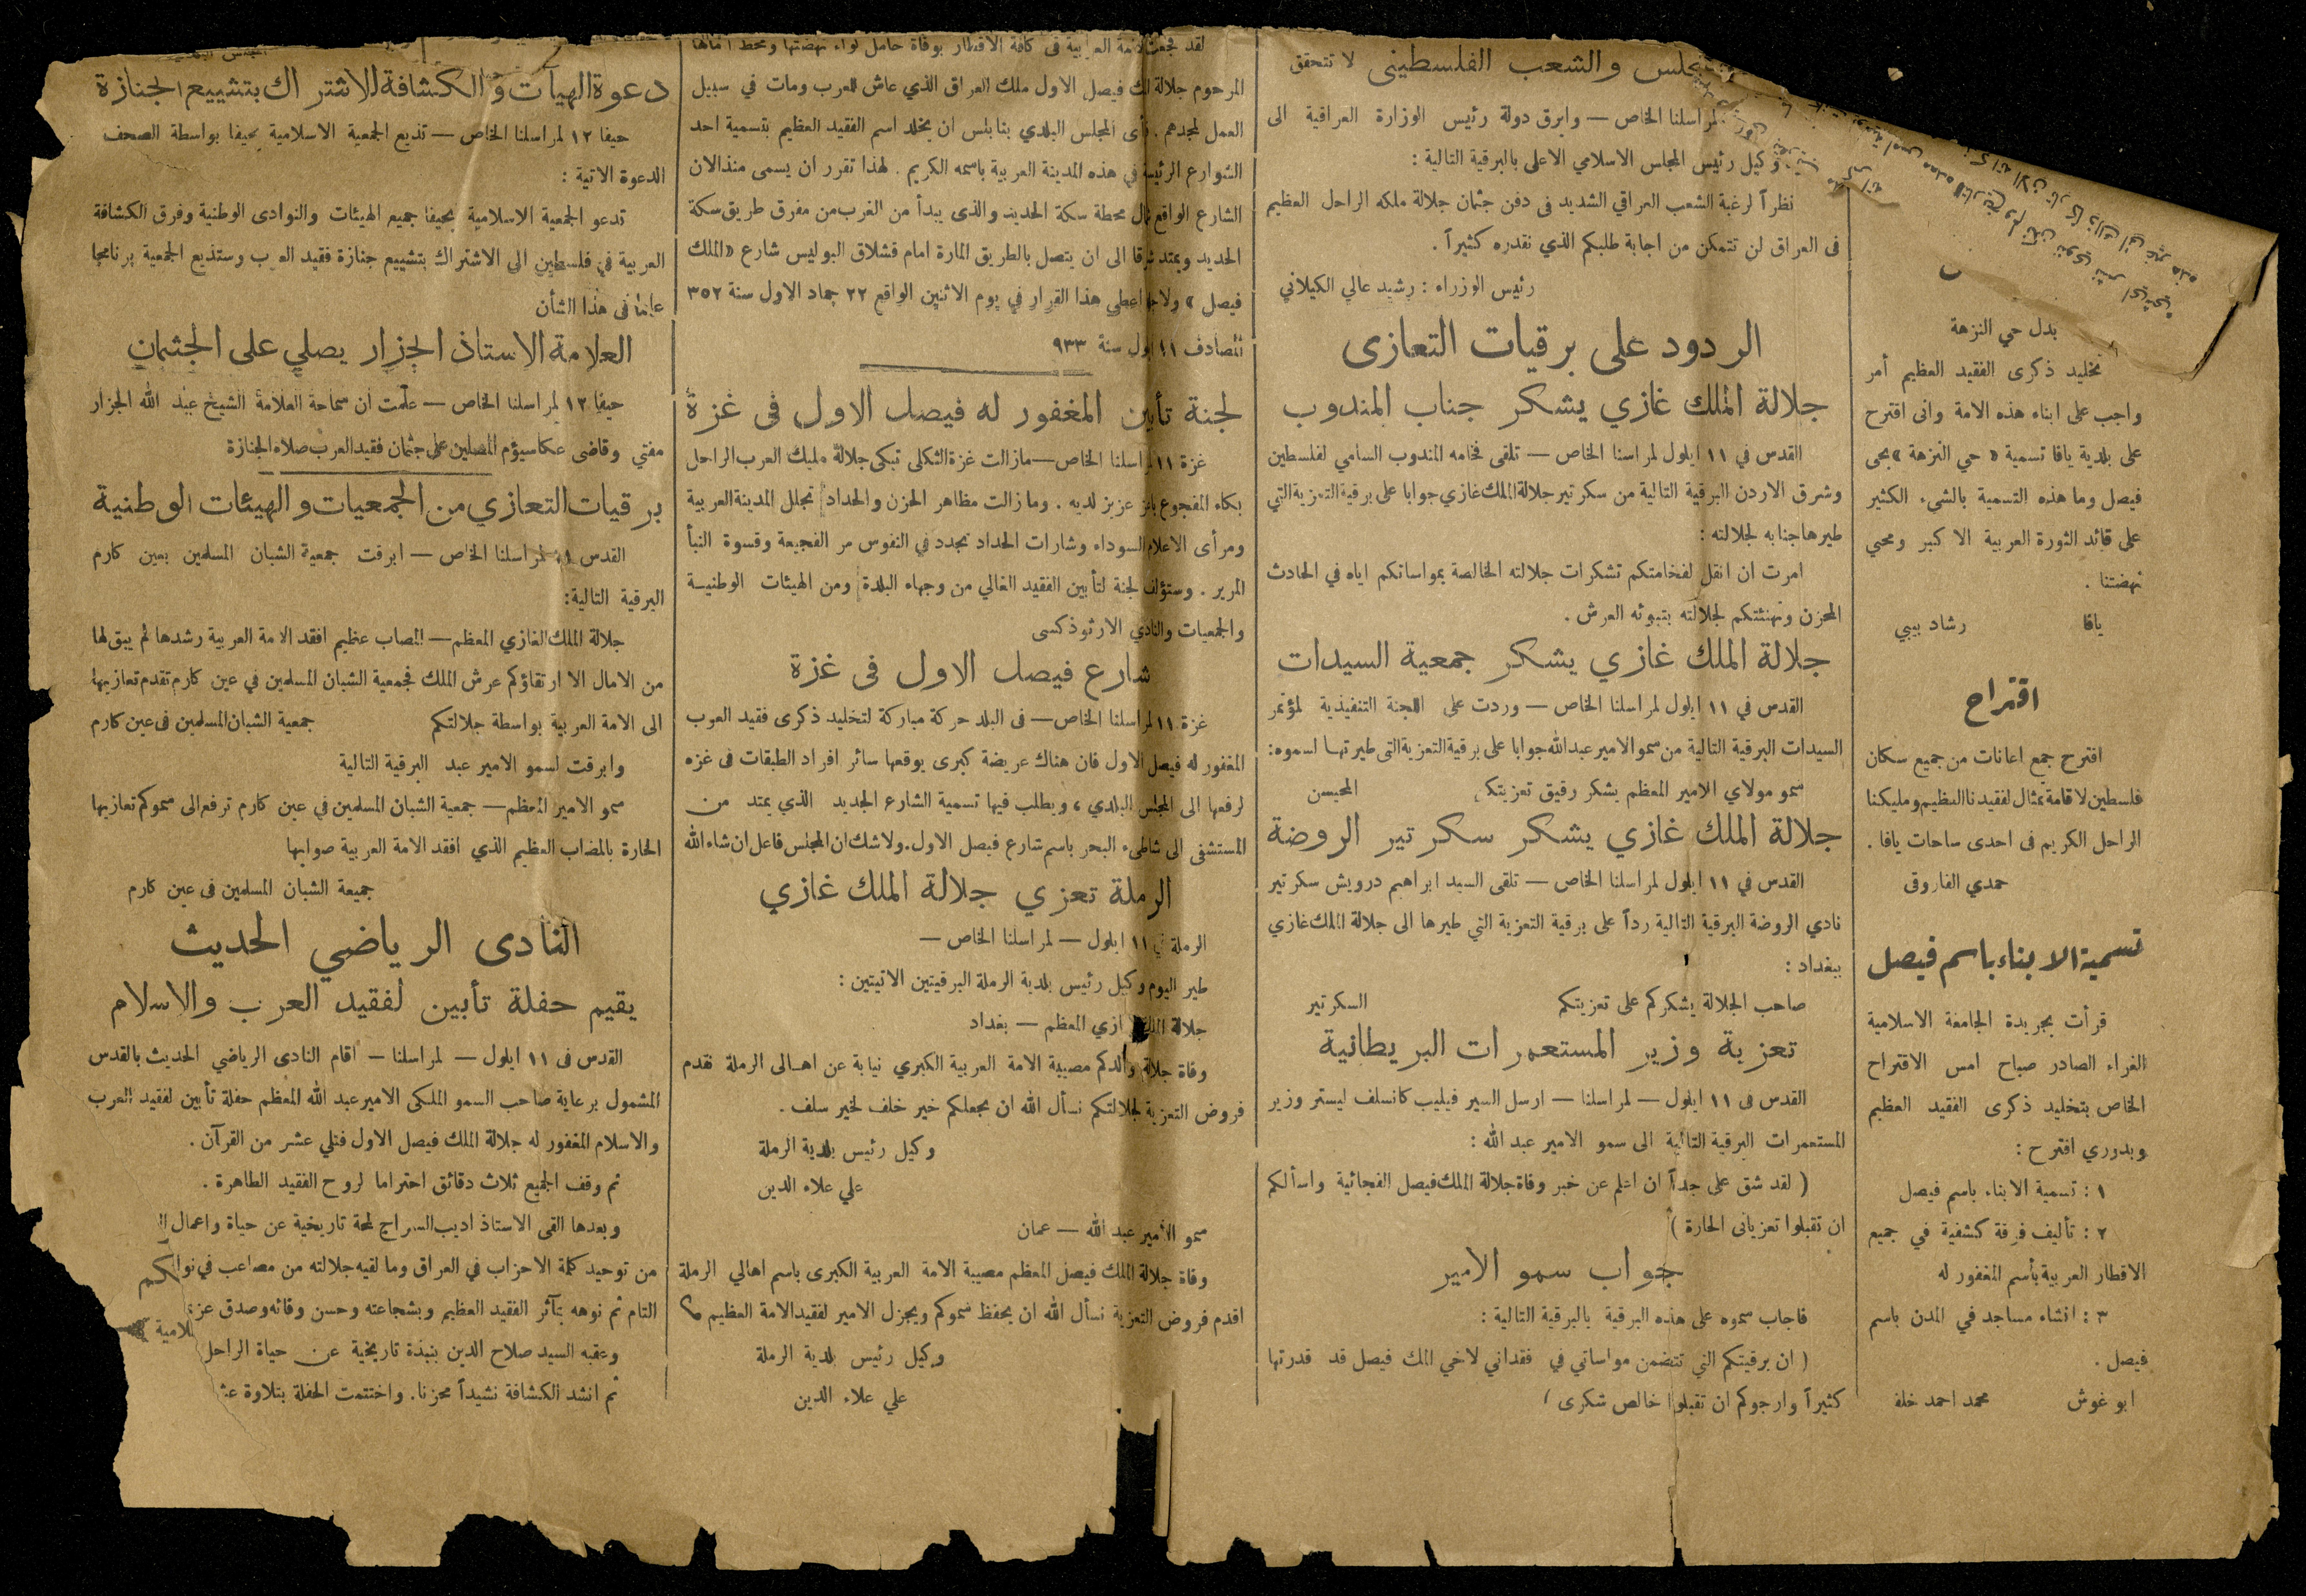 بدل حي النزهة
تخليد ذكرى الفقيد العظيم أمر
واجب على ابناء هذه الامة وانى اقترح
على بلدية يافا تسمية « حي النزهة » بحى
فيصل وما هذه التسمية بالشيء الكثير
على قائد الثورة العربية الا كبر ومحيي
نهضتنا .
يافا رشاد بيبي
اقتراح
اقترح جمع اعانات من جميع سكان
فلسطين لاقامة تمثال لفقيدنا العظيم ومليكنا
الراحل الكريم فى احدى ساحات يافا .
حمدي الفاروقى
تسمية الابناء باسم فيصل
قرأت بجريدة الجامعة الاسلامية
الغراء الصادر صباح امس الاقتراح
الخاص بتخليد ذكرى الفقيد العظيم
وبدوري اقترح :
١ : تسمية الابناء باسم فيصل
٢ : تأليف فرقة كشفية في جميع
الاقطار العربية بأسم المغفور له
٣ : انشاء مساجد في المدن باسم
فيصل .
ابو غوش محمد احمد خلف
والشعب الفلسطينى لا تتحقق
لمراسلنا الخاص — وابرق دولة رئيس الوزارة العراقية الى
وكيل رئيس المجلس الاسلامي الاعلى بالبرقية التالية :
نظراً لرغبة الشعب العراقي الشديد فى دفن جثمان جلالة ملكه الراحل العظيم
فى العراق لن تتمكن من اجابة طلبكم الذي نقدره كثيراً .
رئيس الوزراء : رشيد عالي الكيلاني
الردود على برقيات التعازى
جلالة الملك غازي يشكر جناب المندوب
القدس في ١١ ايلول لمراسنا الخاص — تلقى فخامه المندوب السامي لفلسطين
وشرق الاردن البرقية التالية من سكرتير جلالة الملك غازي جوابا على برقية التعزية التي
طيرها جنابه لجلالته :
امرت ان انقل لفخامتكم تشكرات جلالته الخالصة بمواساتكم اياه في الحادث
المحزن وتهنئتكم لجلالته بتبوئه العرش .
جلالة الملك غازي يشكر جمعية السيدات
القدس في ١١ ايلول لمراسلنا الخاص — وردت على اللجنة التنفيذية لمؤتمر
السيدات البرقية التالية من سمو الامير عبد الله جوابا على برقية التعزية التى طيرتها لسموه :
سمو مولاي الامير المعظم يشكر رقيق تعزيتكم المحيسن
جلالة الملك غازي يشكر سكرتير الروضة
القدس في ١١ ايلول لمراسلنا الخاص — تلقى السيد ابراهيم درويش سكرتير
نادي الروضة البرقية التالية رداً على برقية التعزية التي طيرها الى جلالة الملك غازي
ببغداد :
صاحب الجلالة يشكركم على تعزيتكم السكرتير
تعزية وزير المستعمرات البريطانية
القدس فى ١١ ايلول — لمراسلنا — ارسل السير فيليب كانسلف ليستر وزير
المستعمرات البرقية التالية الى سمو الامير عبد الله :
( لقد شق على جداً ان اعلم عن خبر وفاة جلالة الملك فيصل الفجائية واسألكم
ان تقبلوا تعزياتى الحارة )
جواب سمو الامير
فاجاب سموه على هذه البرقية بالبرقية التالية :
( ان برقيتكم التي تتضمن مواساتي في فقداني لاخي الملك فيصل قد قدرتها
كثيراً وارجوكم ان تقبلوا خالص شكرى )
لقد فجعت الامة العربية فى كافة الاقطار بوفاة حامل لواء نهضتها ومحط آمالها
المرحوم جلالة الملك فيصل الاول ملك العراق الذي عاش للعرب ومات في سبيل
العمل لمجدهم . رأى المجلس البلدي بنابلس ان يخلد اسم الفقيد العظيم بتسمية احد
الشوارع الرئيسة في هذه المدينة العربية باسمه الكريم . لهذا تقرر ان يسمى منذ الان
الشارع الواقع شمال محطة سكة الحديد والذى يبدأ من الغرب من مفرق طريق سكة
الحديد ويمتد شرقا الى ان يتصل بالطريق المارة امام قشلاق البوليس شارع « الملك
فيصل » ولاجله اعطي هذا القرار في يوم الاثنين الواقع ٢٢ جماد الاول سنة ٣٥٢
المصادف ١١ ايلول سنة ٩٣٣
لجنة تأبين المغفور له فيصل الاول فى غزة
غزة ١١ لمراسلنا الخاص — مازالت غزة الثكلى تبكى جلالة مليك العرب الراحل
بكاء المفجوع باعز عزيز لديه . وما زالت مظاهر الحزن والحداد تجلل المدينة العربية
ومرأى الاعلام السوداء وشارات الحداد تجدد في النفوس مر الفجيعة وقسوة النبأ
المرير . وستؤلف لجنة لتأبين الفقيد الغالي من وجهاء البلدة ومن الهيئات الوطنيسة
والجمعيات والنادي الارثوذكسى
شارع فيصل الاول فى غزة
غزة ١١ لمراسلنا الخاص — فى البلد حركة مباركة لتخليد ذكرى فقيد العرب
المغفور له فيصل الاول فان هناك عريضة كبرى يوقعها سائر افراد الطبقات فى غزه
لرفعها الى المجلس البلدي ، ويطلب فيها تسمية الشارع الجديد الذي يمتد من
المستشفى الى شاطىء البحر باسم شارع فيصل الاول . ولا شك ان المجلس فاعل ان شاء الله
الرملة تعزي جلالة الملك غازي
الرملة في ١١ ايلول — لمراسلنا الخاص —
طير اليوم وكيل رئيس بلدية الرملة البرقيتين الاتيتين :
جلالة الملك غازي المعظم — بغداد
وفاة جلالة والدكم مصيبة الامة العربية الكبري نيابة عن اهالى الرملة نقدم
فروض التعزية لجلالتكم نسأل الله ان يجعلكم خير خلف لخير سلف .
وكيل رئيس بلدية الرملة
علي علاء الدين
سمو الأمير عبد الله — عمان
وفاة جلالة الملك فيصل المعظم مصيبة الامة العربية الكبرى باسم اهالي الرملة
اقدم فروض التعزية نسأل الله ان يحفظ سموكم ويجزل الامير لفقيد الامة العظيم
وكيل رئيس بلدية الرملة
علي علاء الدين
دعوة الهيآت والكشافة للاشتراك بتشييع الجنازة
حيفا ١٢ لمراسلنا الخاص — تذيع الجمعية الاسلامية بحيفا بواسطة الصحف
الدعوة الاتية :
تدعو الجمعية الاسلامية بحيفا جميع الهيئات والنوادى الوطنية وفرق الكشافة
العربية في فلسطين الى الاشتراك بتشييع جنازة فقيد العرب وستذيع الجمعية برنامجها
فى هذا الشأن
العلامة الاستاذ الجزار يصلي على الجثمان
حيفا ١٢ لمراسلنا الخاص — علمت ان سماحة العلامة الشيخ عبد الله الجزار
مفتي وقاضى عكا سيؤم المصلين على جثمان فقيد العرب صلاه الجنازة
برقيات التعازي من الجمعيات والهيئات الوطنية
القدس ١١ لمراسلنا الخاص — ابرقت جمعية الشبان المسلمين بعين كارم
البرقية التالية :
جلالة الملك الغازي المعظم — المصاب عظيم افقد الامة العربية رشدها لم يبق لها
من الامال الا ارتقاؤكم عرش الملك فجمعية الشبان المسلمين في عين كارم تقدم تعازيها
الى الامة العربية بواسطة جلالتكم جمعية الشبان المسلمين فى عين كارم
وابرقت لسمو الامير عبد البرقية التالية
سمو الامير المعظم — جمعية الشبان المسلمين في عين كارم ترفع الى سموكم تعازيها
الحارة بالمصاب العظيم الذي افقد الامة العربية صوابها
جميعة الشبان المسلمين فى عين كارم
النادى الرياضي الحديث
يقيم حفلة تأبين لفقيد العرب والاسلام
القدس فى ١١ ايلول — لمراسلنا — اقام النادى الرياضي الحديث بالقدس
المشمول برعاية صاحب السمو الملكى الامير عبد الله المعظم حفلة تأبين لفقيد العرب
والاسلام المغفور له جلالة الملك فيصل الاول فتلي عشر من القرآن .
ثم وقف الجميع ثلاث دقائق احتراما لروح الفقيد الطاهرة .
وبعدها القى الاستاذ اديب السراج لمحة تاريخية عن حياة واعمال
من توحيد كلمة الاحزاب في العراق وما لقيه جلالته من مصاعب في
التام ثم نوهه بمآثر الفقيد العظيم وبشجاعته وحسن وفائه وصدق
وعقبه السيد صلاح الدين بنبذة تاريخية عن حياة الراحل
ثم انشد الكشافة نشيداً محزنا . واختتمت الحفلة بتلاوة